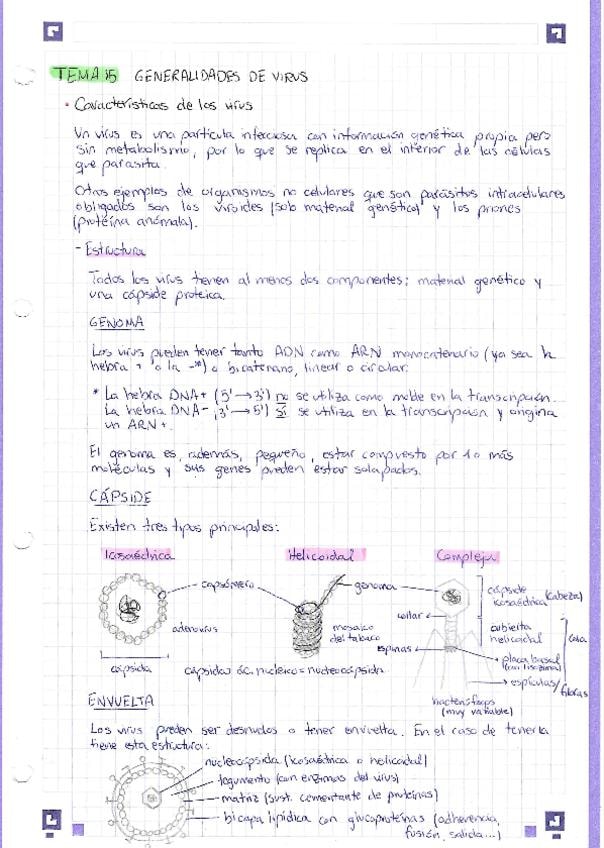 TEMA 15 GENERALIDADES DE VIRUS
• Características de los virus
Un virus es una partícula infecciosa con información genética propia pero
sin metabolismo, por lo que se replica en el interior de las células
que parasita.
Otros ejemplos de organismos no celulares que son parásitos intracelulares
obligados son los viroides (solo material genético) y los priones
(proteína anómala).
- Estructura
Todos los virus tienen al menos dos componentes: material genético y
una cápside proteica.
GENOMA
Los virus pueden tener tanto ADN como ARN monocatenario (ya sea la
hebra + o la -*) o bicatenario, linear o circular.
* La hebra DNA+ (5' → 3') no se utiliza como molde en la transcripción.
La hebra DNA- (3' → 5') sí se utiliza en la transcripción y origina
un ARN+.
El genoma es, además, pequeño, estar compuesto por 1 o más
moléculas y sus genes pueden estar solapados.
CÁPSIDE
Existen tres tipos principales:
Icosaédrica Helicoidal Compleja
capsómero
genoma
cápside
icosaédrica (cabeza)
collar
adenovirus
mosaico
del tabaco
cubierta
helicoidal
cola
espinas
placa basal
(con lisozima)
espículas/
fibras
cápsida
cápsida + ác. nucleico = nucleocápsida
bacteriófagos
(muy variable)
ENVUELTA
Los virus pueden ser desnudos o tener envuelta. En el caso de tenerla
tiene esta estructura:
nucleocápsida (icosaédrica o helicoidal)
tegumento (con enzimas del virus)
matriz (sust. cementante de proteínas)
bicapa lipídica con glucoproteínas (adherencia,
fusión, salida...)